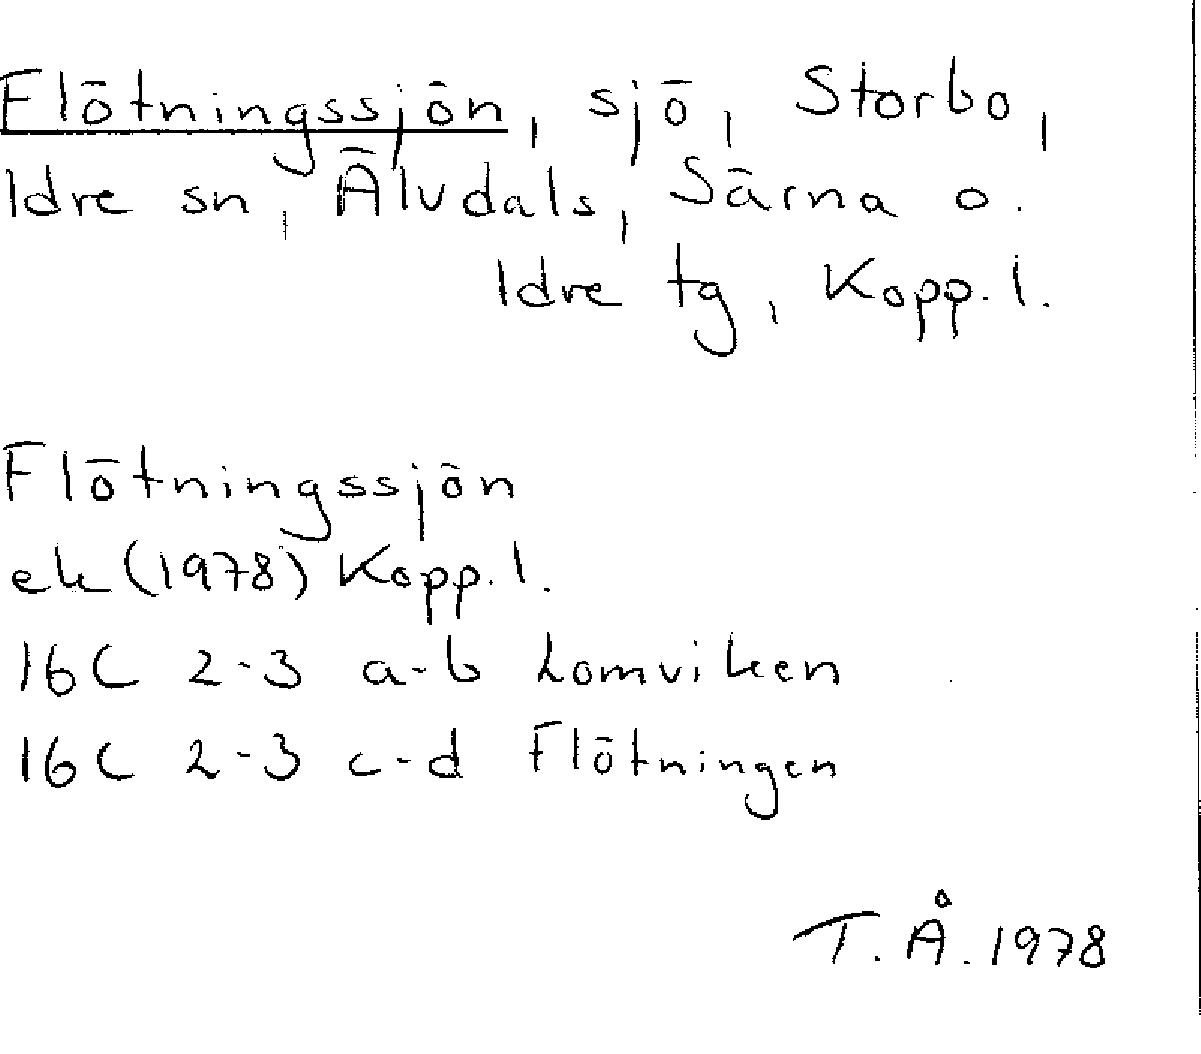 Flötningssjön, sjö, Storbo,
Idre sn, Älvdals, Särna o.
Idre tg, Kopp. l.
Flötningssjön
ek (1978) Kopp. l.
16C 2-3 a-b Lomviken
16C 2-3 c-d Flötningen
T. Å. 1978